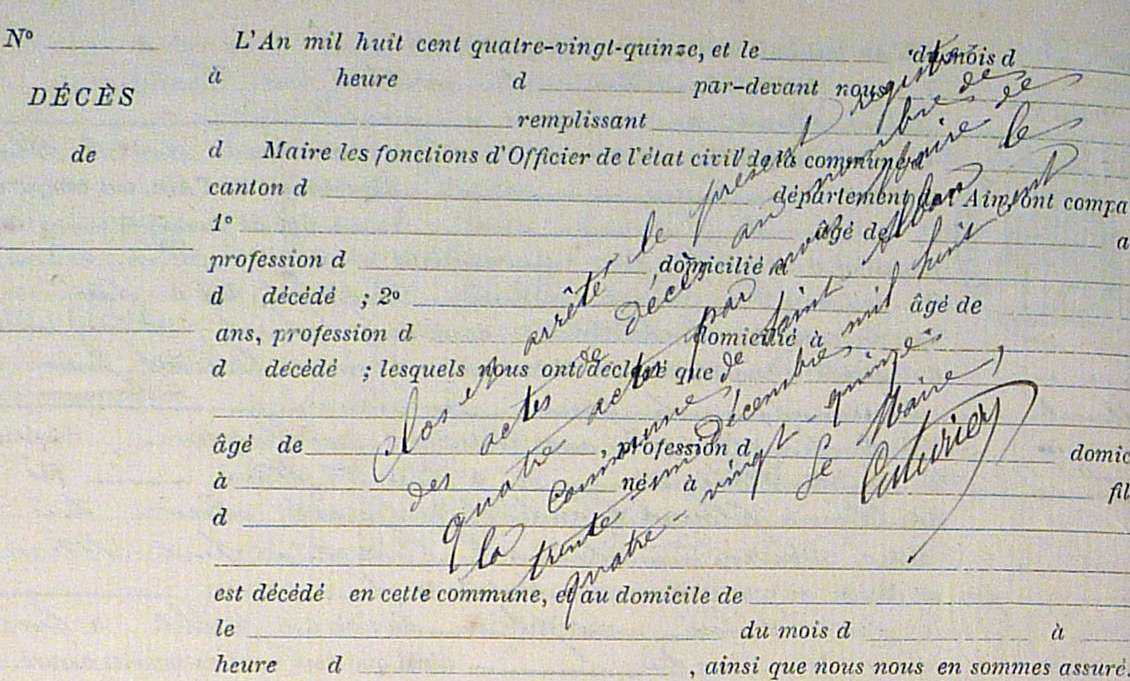 N° L'An mil huit cent quatre-vingt-quinze, et le du mois d
à heure d par-devant nous
DÉCÈS
remplissant
de d Maire les fonctions d'Officier de l'état civil de la commune d
canton d département de l'Ain, ont compa
1° âgé de a
profession d , domicilié à
d décédé ; 2° âgé de
ans, profession d domicilié à
d décédé ; lesquels nous ont déclaré que
âgé de , profession d domic
à né à fil
d
est décédé en cette commune, et au domicile de
le du mois d à
heure d , ainsi que nous nous en sommes assuré.
Clos et arrêté le présent registre
des actes de décès au nombre de
quatre actes par nous Maire de
la commune de Saint Alban le
trente un Décembre mil huit cent
quatre-vingt-quinze.
Le Maire,